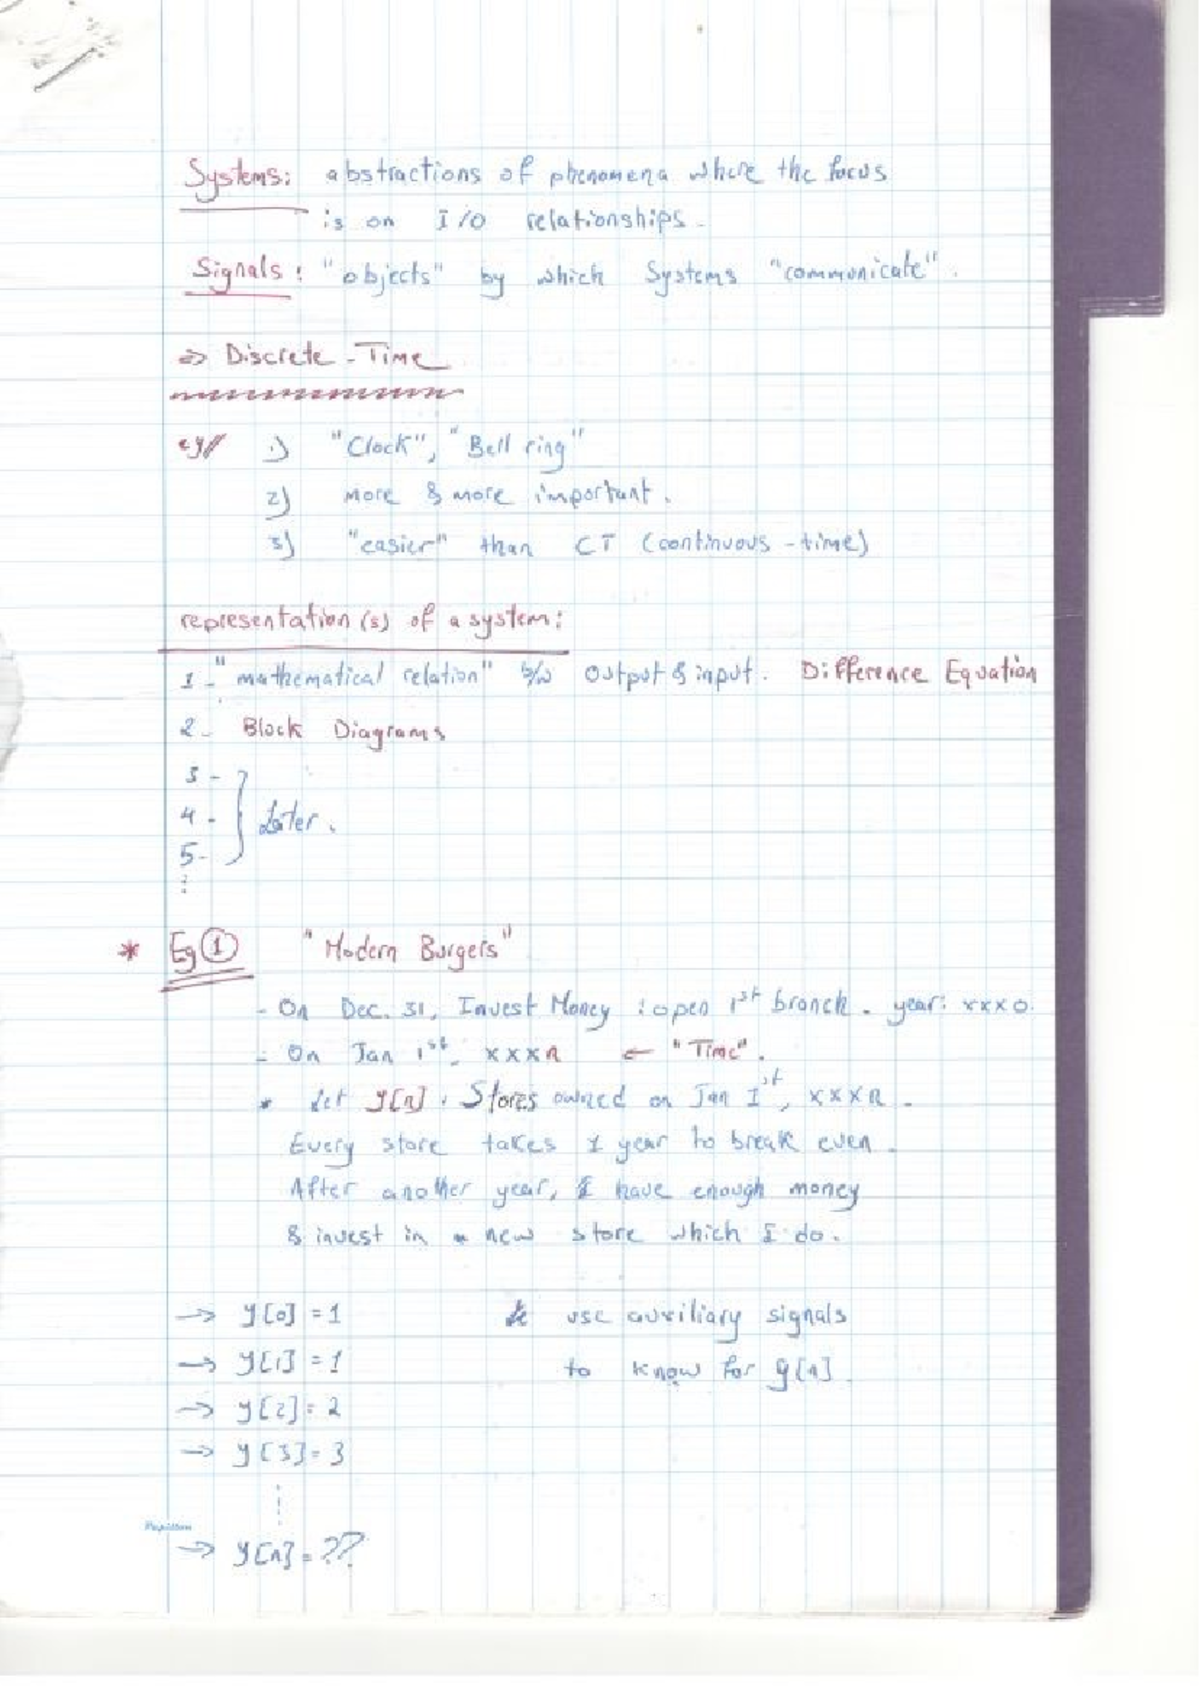 Systems: abstractions of phenomena where the focus
is on I/O relationships.
Signals: "objects" by which Systems "communicate".
⇒ Discrete-Time
eg// 1) "Clock", "Bell ring"
2) more & more important.
3) "easier" than CT (continuous-time)
representation(s) of a system:
1- "mathematical relation" b/w output & input. Difference Equation
2- Block Diagrams
3-
4- } Later.
5-
⋮
* Eg ① "Modern Burgers"
- On Dec. 31, Invest Money : open 1st branch. year: xxx0.
- On Jan 1st, xxxn ← "Time".
* Let y[n]: Stores owned on Jan 1st, xxxn.
Every store takes 1 year to break even.
After another year, I have enough money
& invest in a new store which I do.
→ y[0] = 1 use auxiliary signals
→ y[1] = 1 to know for y[n]
→ y[2] = 2
→ y[3] = 3
⋮
Papillon
→ y[n] = ??